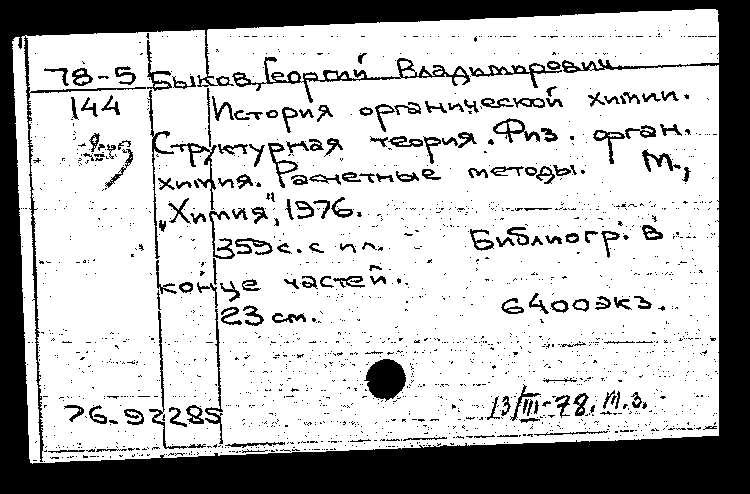 78-5 Быков, Георгий Владимирович.
144 История органической химии.
Структурная теория. Физ. орган.
химия. Расчетные методы. М.,
„Химия", 1976.
359 с. с ил. Библиогр. в
конце частей.
23 см. 6400 экз.
76-92285 13/III-78. М.З.